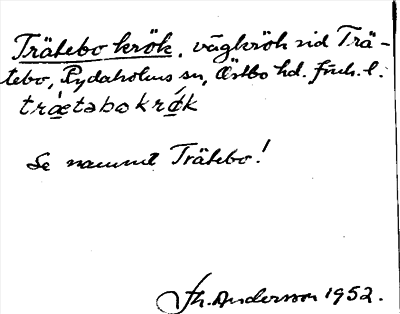 Trätebo krök, vägkrök vid Trä-
tebo, Rydaholms sn, Östbo hd. Jönk. l.
trætabokrǿk
Se namnet Trätebo!
Th. Andersson 1952.